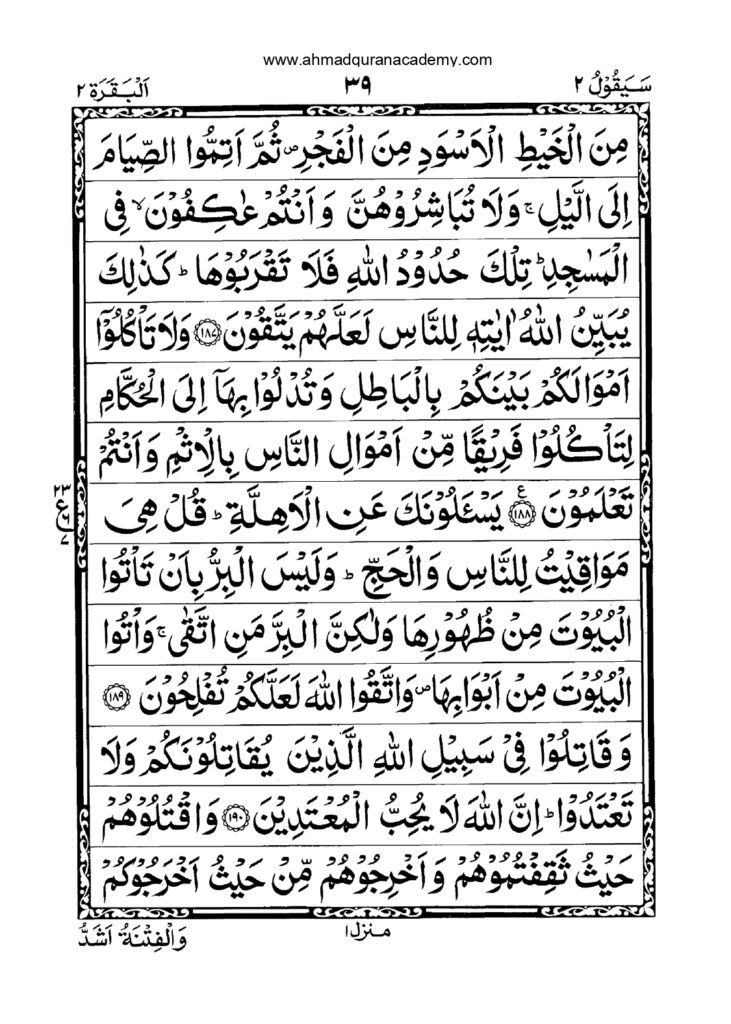 www.ahmadquranacademy.com
سَيَقُوۡلُ ٢ ٣٩ اَلۡبَقَرَة ٢
مِنَ الۡخَيۡطِ الۡاَسۡوَدِ مِنَ الۡفَجۡرِ ص ثُمَّ اَتِمُّوا الصِّيَامَ
اِلَى الَّيۡلِ ج وَلَا تُبَاشِرُوۡهُنَّ وَاَنۡتُمۡ عٰكِفُوۡنَ لا فِى
الۡمَسٰجِدِ ط تِلۡكَ حُدُوۡدُ اللّٰهِ فَلَا تَقۡرَبُوۡهَا ط كَذٰلِكَ
يُبَيِّنُ اللّٰهُ اٰيٰتِهٖ لِلنَّاسِ لَعَلَّهُمۡ يَتَّقُوۡنَ ۝١٨٧ وَلَا تَاۡكُلُوۡٓا
اَمۡوَالَكُمۡ بَيۡنَكُمۡ بِالۡبَاطِلِ وَتُدۡلُوۡا بِهَآ اِلَى الۡحُكَّامِ
لِتَاۡكُلُوۡا فَرِيۡقًا مِّنۡ اَمۡوَالِ النَّاسِ بِالۡاِثۡمِ وَاَنۡتُمۡ
تَعۡلَمُوۡنَ ۝١٨٨ ع يَسۡـَٔلُوۡنَكَ عَنِ الۡاَهِلَّةِ ط قُلۡ هِىَ
٢٣ ع ٦ ٧
مَوَاقِيۡتُ لِلنَّاسِ وَالۡحَجِّ ط وَلَيۡسَ الۡبِرُّ بِاَنۡ تَاۡتُوا
الۡبُيُوۡتَ مِنۡ ظُهُوۡرِهَا وَلٰكِنَّ الۡبِرَّ مَنِ اتَّقٰى ج وَاۡتُوا
الۡبُيُوۡتَ مِنۡ اَبۡوَابِهَا ص وَاتَّقُوا اللّٰهَ لَعَلَّكُمۡ تُفۡلِحُوۡنَ ۝١٨٩
وَقَاتِلُوۡا فِىۡ سَبِيۡلِ اللّٰهِ الَّذِيۡنَ يُقَاتِلُوۡنَكُمۡ وَلَا
تَعۡتَدُوۡا ط اِنَّ اللّٰهَ لَا يُحِبُّ الۡمُعۡتَدِيۡنَ ۝١٩٠ وَاقۡتُلُوۡهُمۡ
حَيۡثُ ثَقِفۡتُمُوۡهُمۡ وَاَخۡرِجُوۡهُمۡ مِّنۡ حَيۡثُ اَخۡرَجُوۡكُمۡ
منزل ١
وَالۡفِتۡنَةُ اَشَدُّ